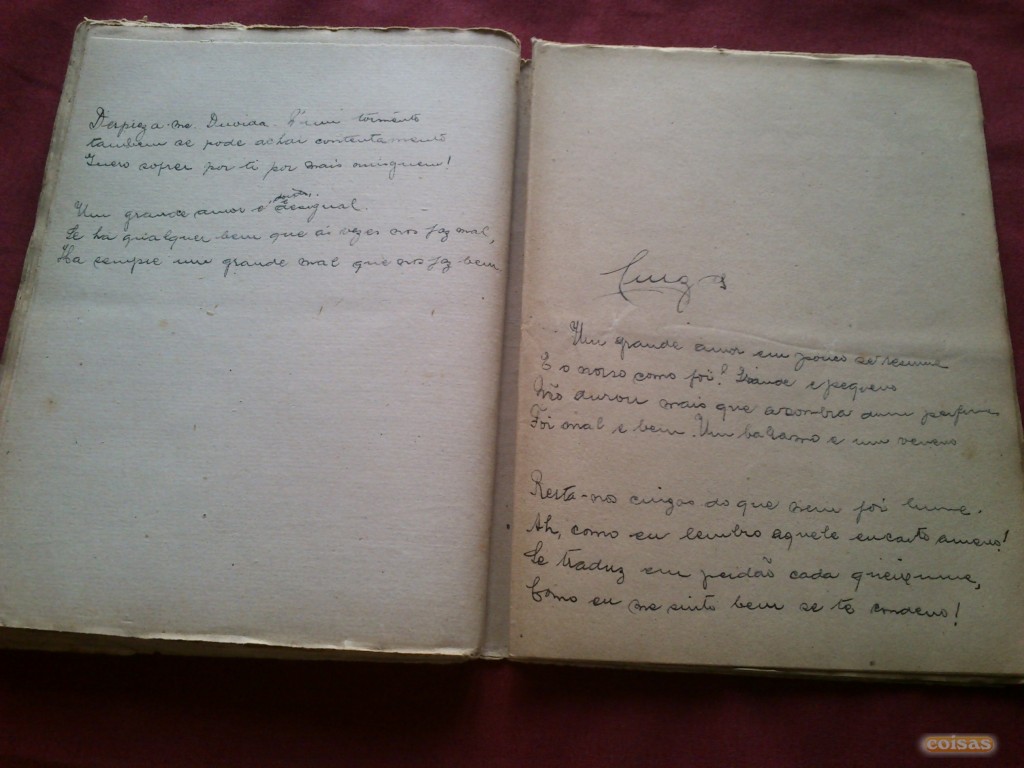 Despreza-me. Duvida. N'um tormento
tambem se pode achar contentamento
Quero sofrer por ti por mais ninguem!
Um grande amor é desigual.
Se ha qualquer bem que ás vezes nos faz mal,
Ha sempre um grande mal que nos faz bem
Um grande amor em pouco se resume
E o nosso como foi? Grande e pequeno
Não durou mais que a sombra dum perfume
Foi mal e bem. Um balsamo e um veneno
Resta-nos cinzas do que nem foi lume.
Ah, como eu lembro aquele encanto ameno!
Se traduz em perdão cada queixume,
Como eu me sinto bem se te condeno!
coisas